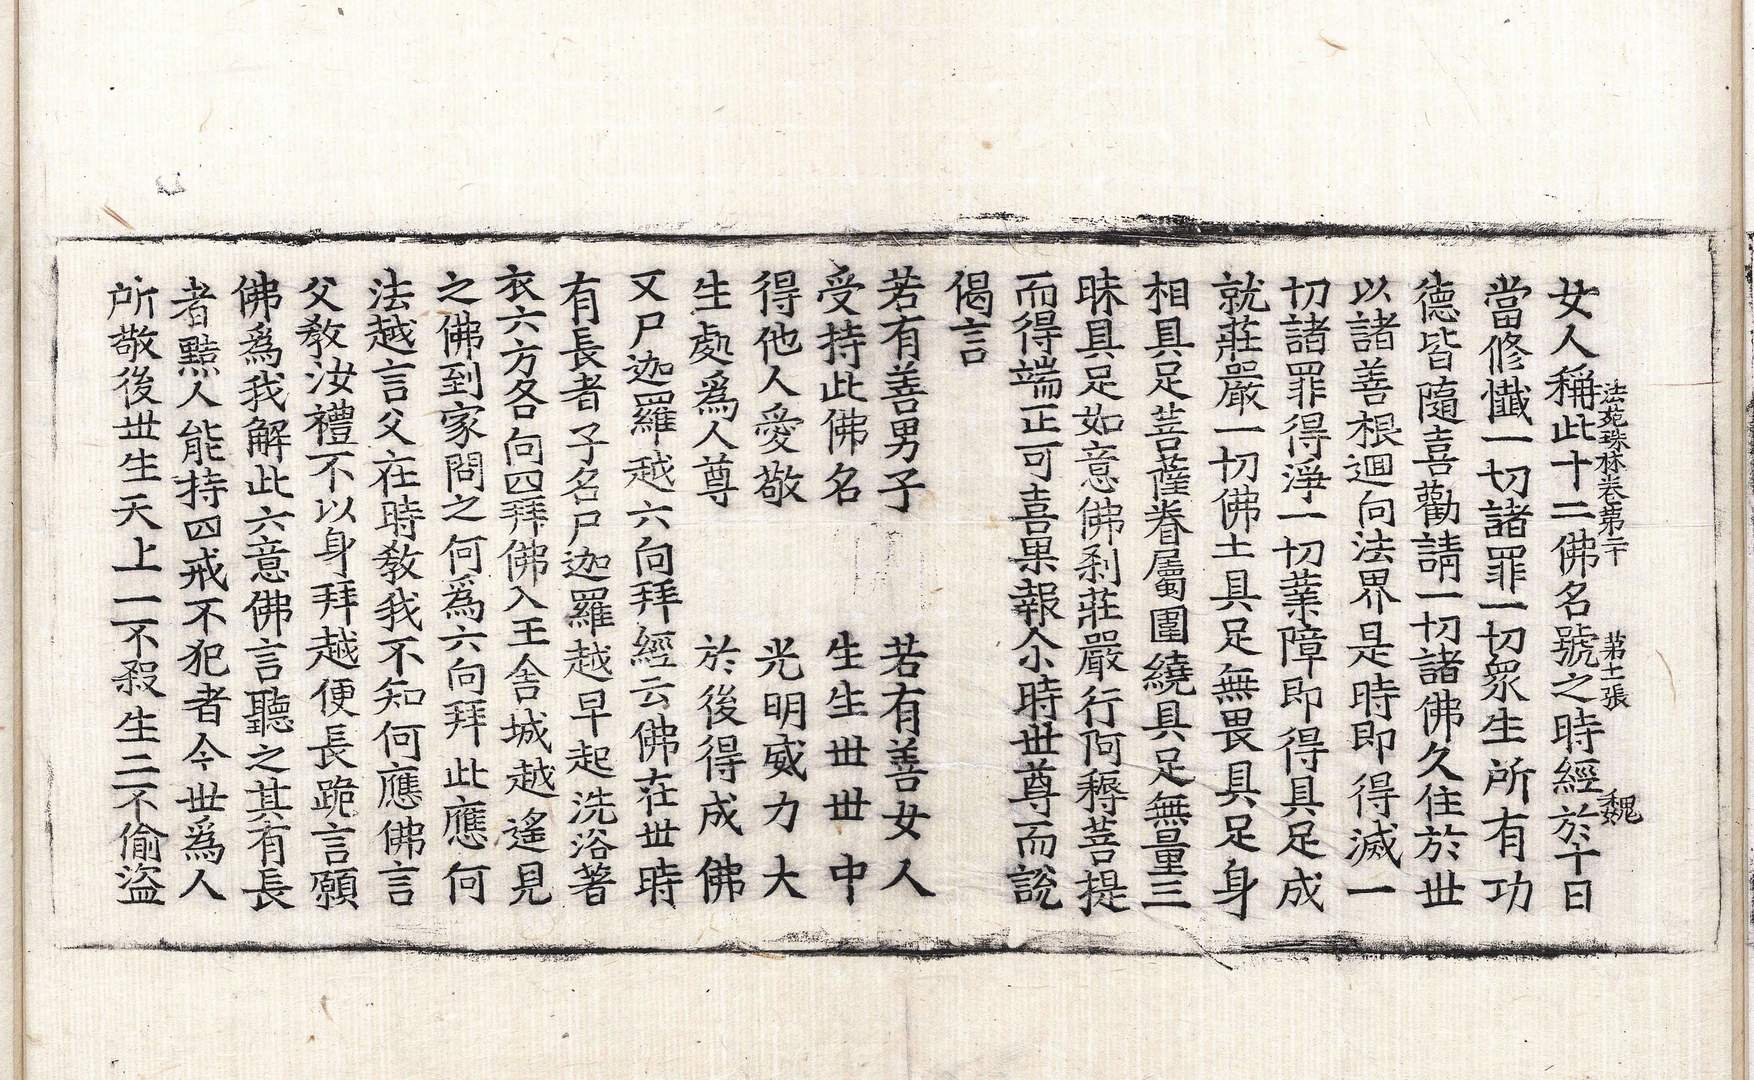 法苑珠林卷第二十 第十二張 魏
女人稱此十二佛名號之時經於十日
當修懺一切諸罪一切眾生所有功
德皆隨喜勸請一切諸佛久住於世
以諸善根迴向法界是時即得滅一
切諸罪得淨一切業障即得具足成
就莊嚴一切佛土具足無畏具足身
相具足菩薩眷屬圍繞具足無量三
昧具足如意佛剎莊嚴行阿耨菩提
而得端正可喜果報介小時世尊而說
偈言
若有善男子 若有善女人
受持此佛名 生生世世中
得他人愛敬 光明威力大
生處爲人尊 於後得成佛
又尸迦羅越六向拜經云佛在世時
有長者子名尸迦羅越早起洗浴著
衣六方各向四拜佛入王舍城越遙見
之佛到家問之何爲六向拜此應何
法越言父在時教我不知何應佛言
父教汝禮不以身拜越便長跪言願
佛爲我解此六意佛言聽之其有長
者黠人能持四戒不犯者今世爲人
所敬後世生天上一不殺生二不偷盜